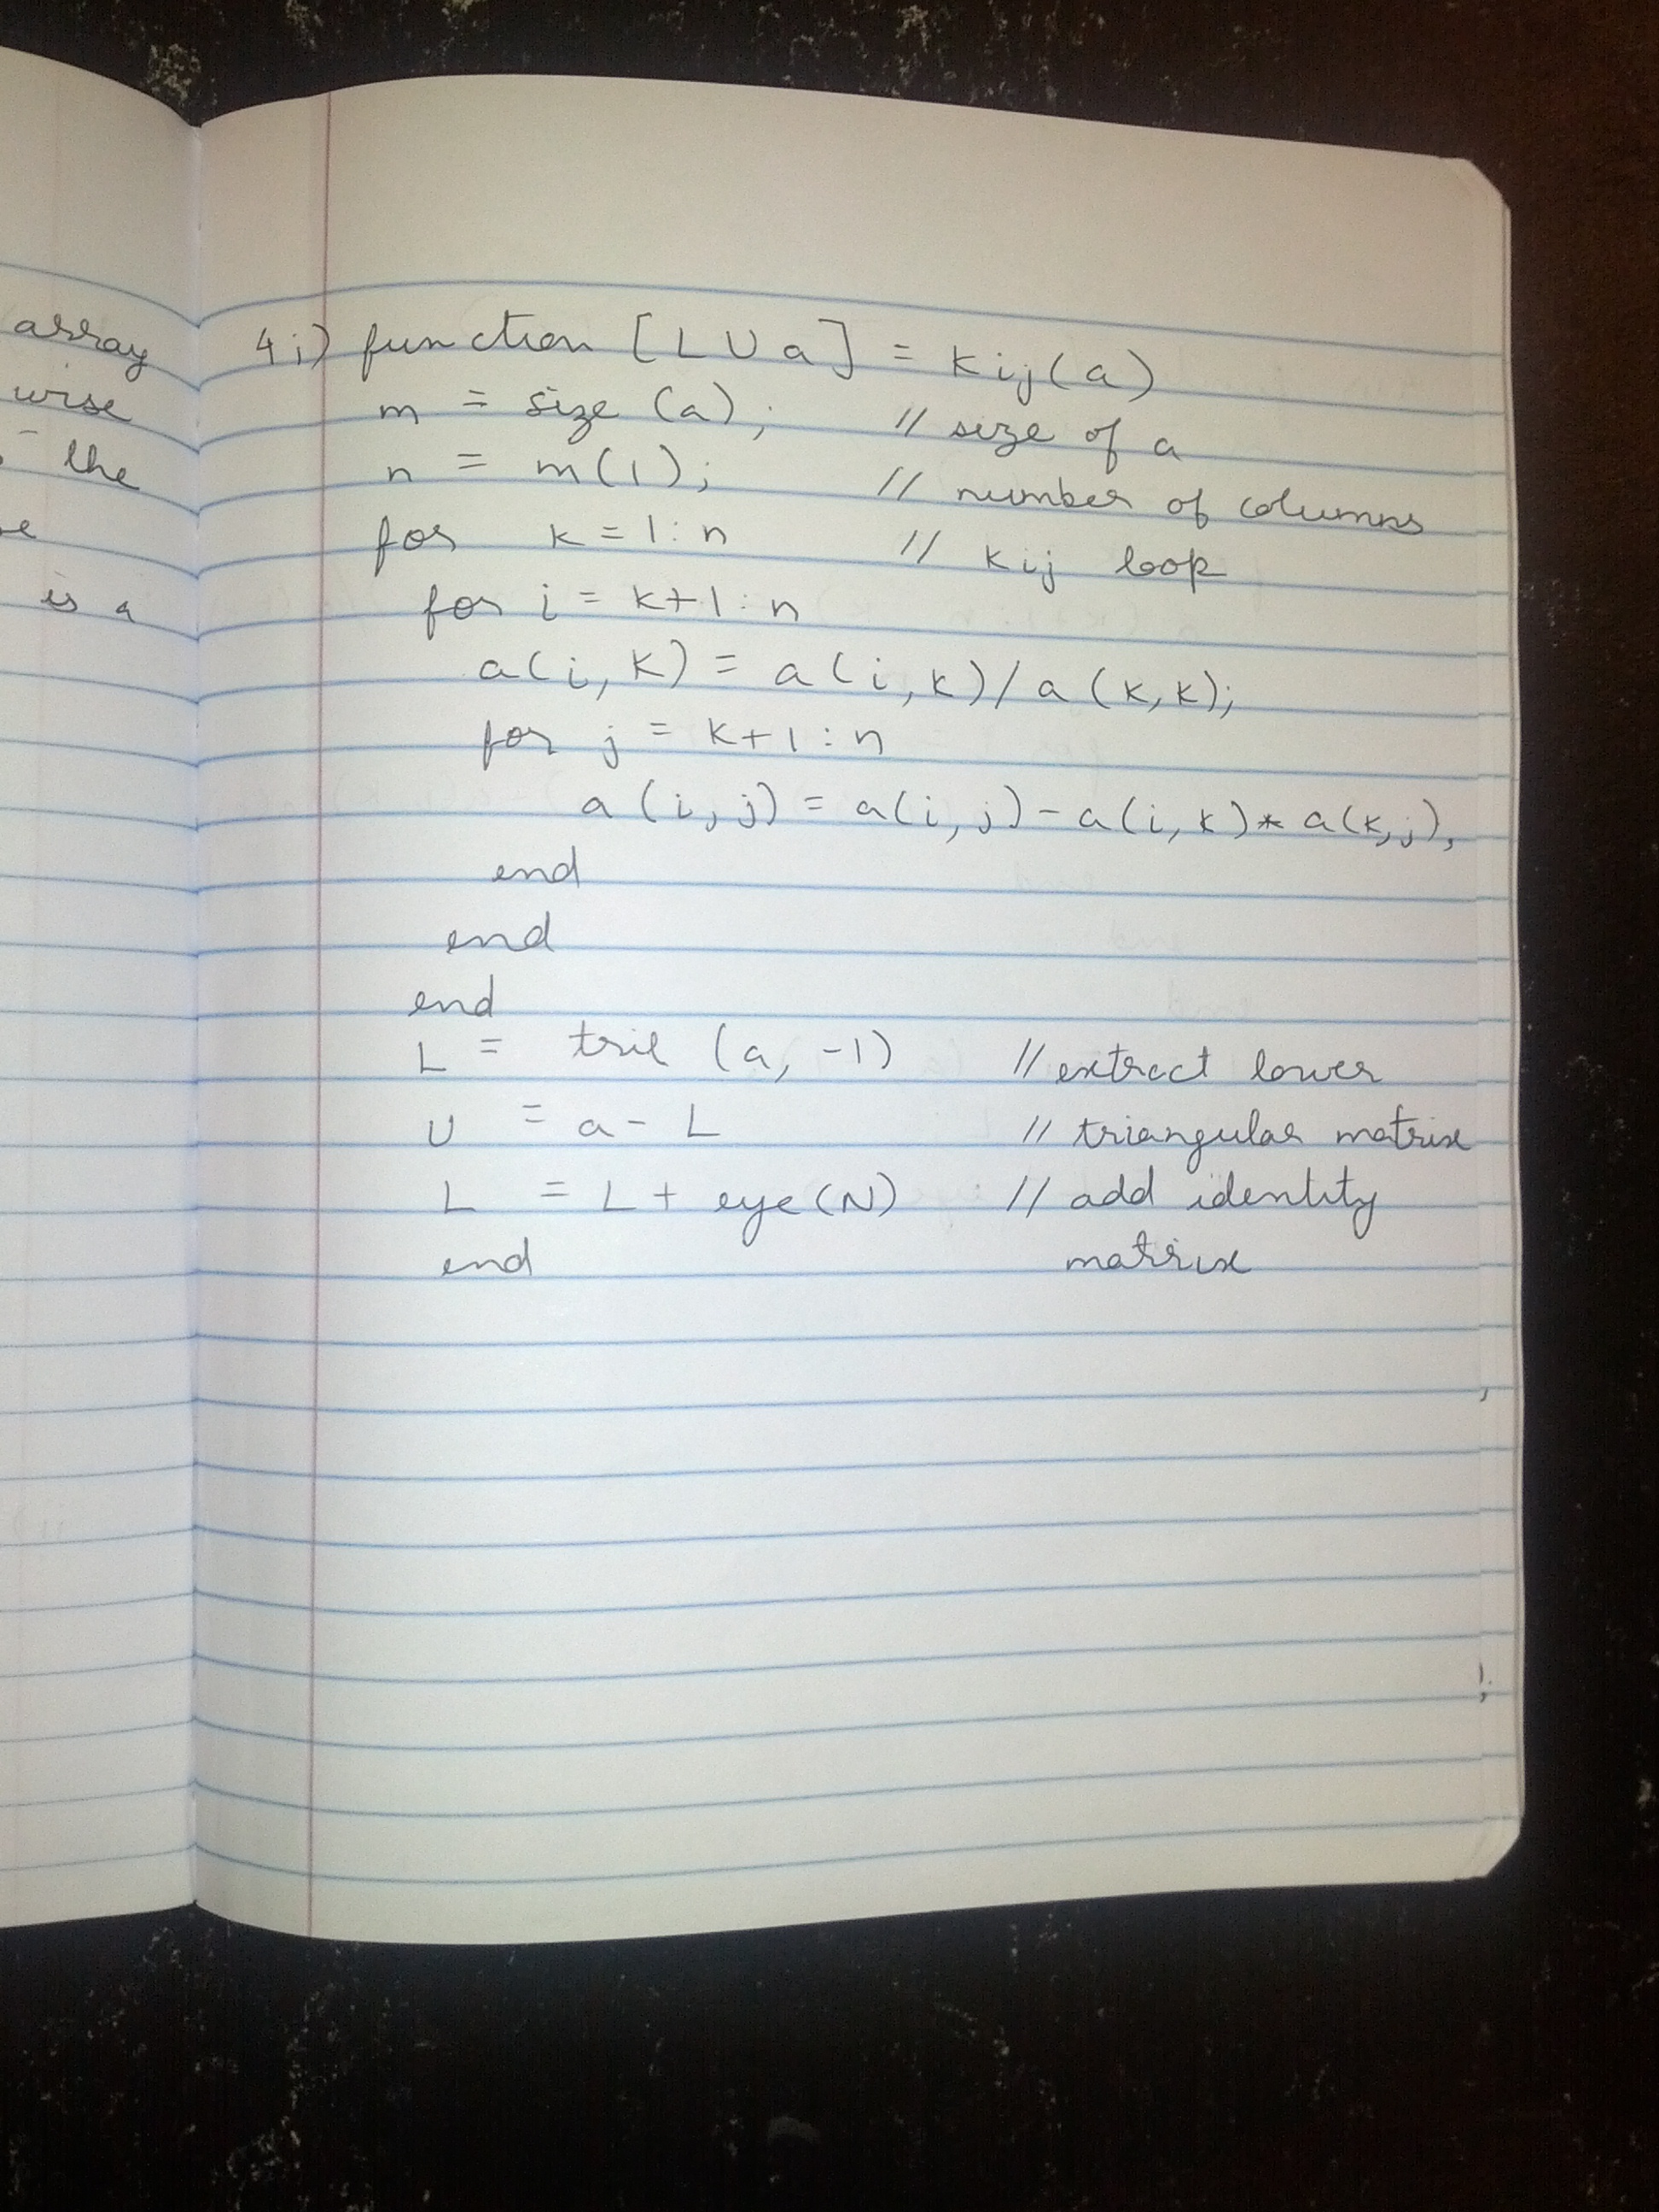 array
wise
the
is a
4i) function [L U a] = kij(a)
m = size (a); // size of a
n = m(1); // number of columns
for k = 1:n // kij loop
for i = k+1:n
a(i,k) = a(i,k)/a(k,k);
for j = k+1:n
a(i,j) = a(i,j)-a(i,k)*a(k,j),
end
end
end
L = tril (a, -1) // extract lower
U = a - L // triangular matrix
L = L + eye(N) // add identity
end matrix